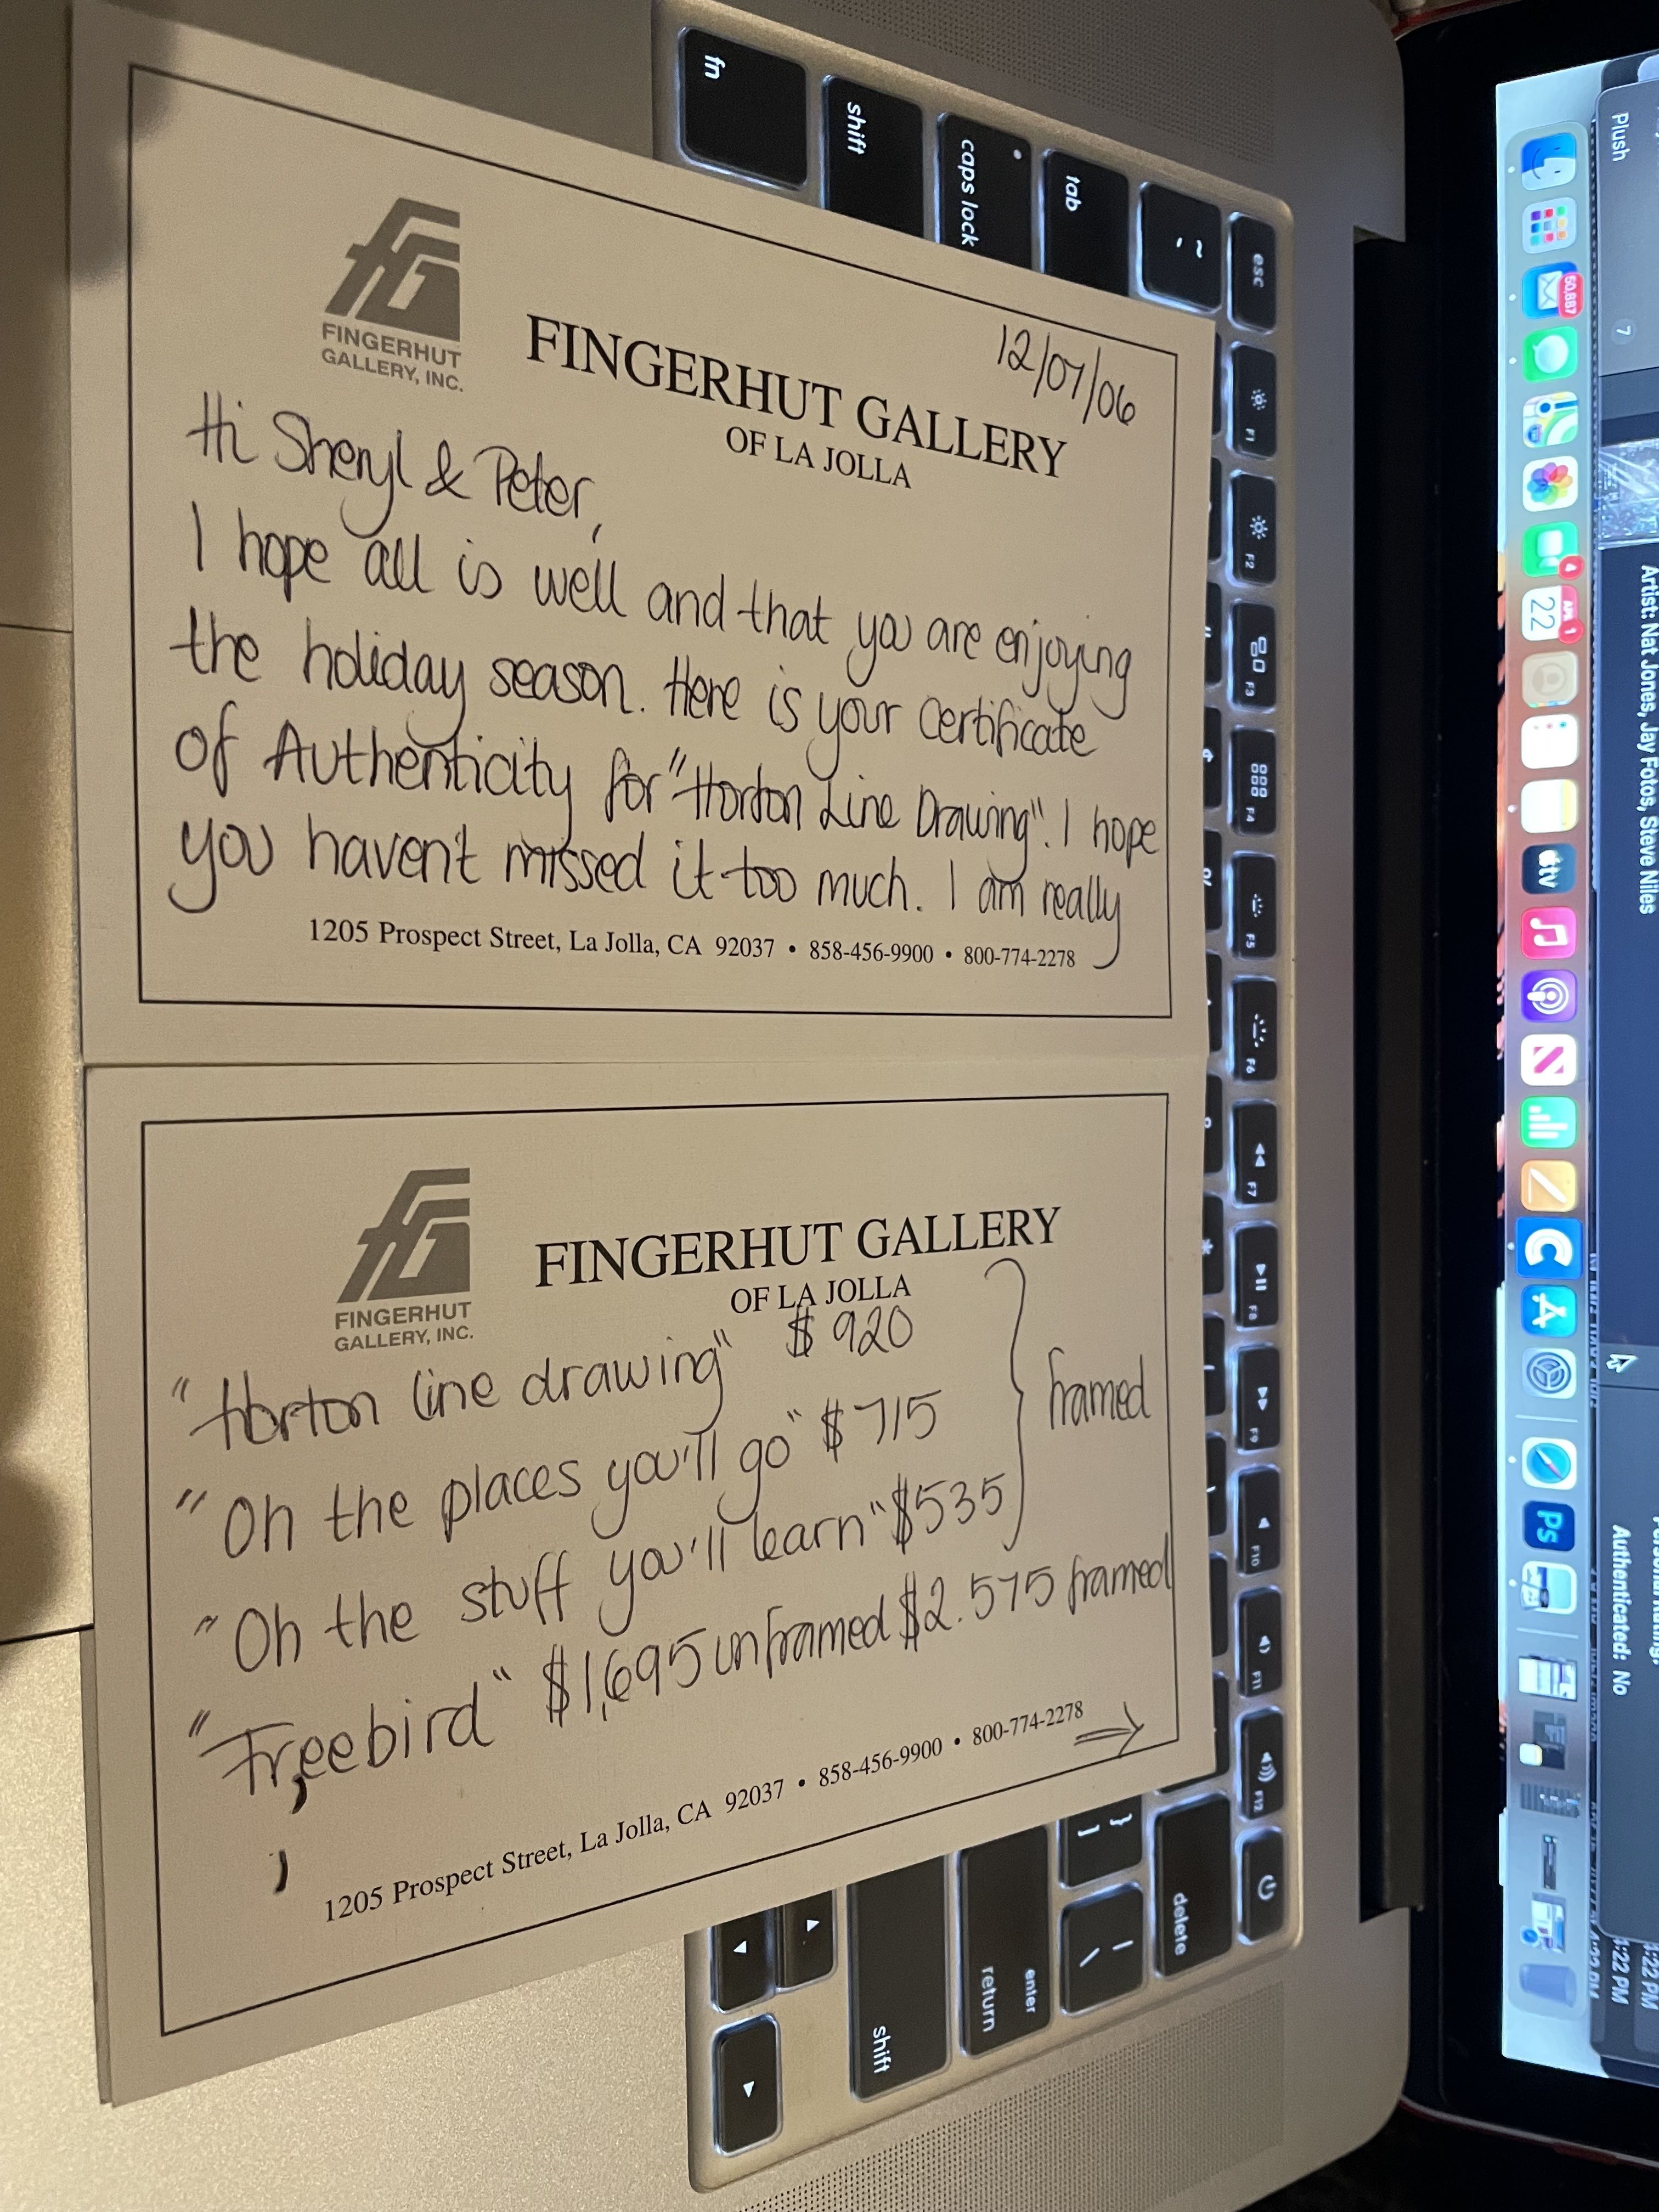 12/07/06
FINGERHUT
GALLERY, INC.
FINGERHUT GALLERY
OF LA JOLLA
Hi Sheryl & Peter,
I hope all is well and that you are enjoying
the holiday season. Here is your Certificate
of Authenticity for "Horton Line Drawing". I hope
you haven't missed it too much. I am really
1205 Prospect Street, La Jolla, CA 92037 • 858-456-9900 • 800-774-2278
FINGERHUT
GALLERY, INC.
FINGERHUT GALLERY
OF LA JOLLA
"Horton line drawing" $920
"Oh the places you'll go" $715
"Oh the stuff you'll learn" $535
framed
"Freebird" $1,695 unframed $2.575 framed
1205 Prospect Street, La Jolla, CA 92037 • 858-456-9900 • 800-774-2278
fn
shift
caps lock
tab
~
esc
F1
F2
F3
F4
F5
F6
F7
F8
F9
F10
F11
F12
delete
enter
return
shift
Plush
7
Artist: Nat Jones, Jay Fotos, Steve Niles
Authenticated: No
50,887
4
22
1
tv
Ps